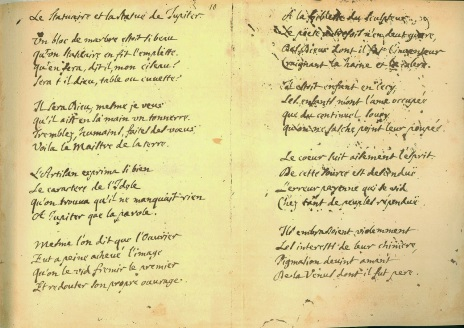 Le Statuaire et la Statue de Jupiter.
Un bloc de marbre estoit si beau
Qu'un Statuaire en fit l'emplette.
Qu'en fera, dit il, mon ciseau?
Sera t il dieu, table ou cuvette?
Il sera Dieu, mesme je veux
Qu'il ait en la main un tonnerre.
Tremblez, humains, faites des vœux
Voila le Maistre de la terre.
L'Artisan exprima si bien
Le caractere de l'Idole
Qu'on trouva qu'il ne manquoit rien
A Jupiter que la parole.
Mesme l'on dit que l'Ouvrier
Eut a peine achevé l'image
Qu'on le vid fremir le premier
Et redouter son propre ouvrage.
A la foiblesse du Sculpteur
Le poëte n'en dut guere,
Des Dieux dont il fut l'inventeur
Craignant la haine et la colere.
Il estoit enfant en cecy,
Les enfants n'ont l'ame occupée
Que du continuel soucy
Qu'on ne fasche point leur poupée.
Le coeur suit aisement l'esprit.
De cette source est descendue
L'erreur payenne qui se vid
Chez tant de peuples répandue
Ils embrassoient violemment
Les interests de leur chimère.
Pigmalion devint amant
De la Venus dont il fut pere.